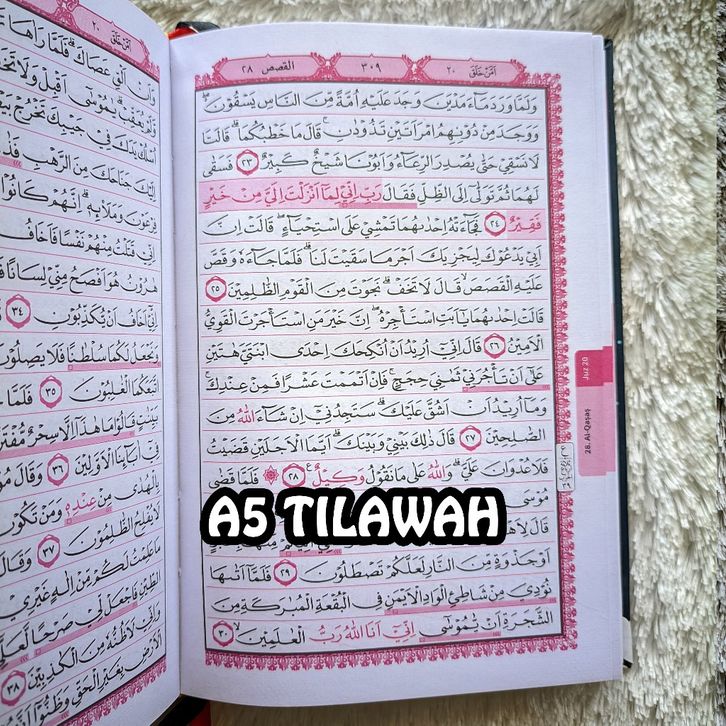 اَمَّنْ خَلَقَ ٢٠
٣٠٩
القصص ٢٨
وَلَمَّا وَرَدَ مَاۤءَ مَدْيَنَ وَجَدَ عَلَيْهِ اُمَّةً مِّنَ النَّاسِ يَسْقُوْنَ ەۖ
وَوَجَدَ مِنْ دُوْنِهِمُ امْرَاَتَيْنِ تَذُوْدٰنِۚ قَالَ مَا خَطْبُكُمَاۗ قَالَتَا
لَا نَسْقِيْ حَتّٰى يُصْدِرَ الرِّعَاۤءُ وَاَبُوْنَا شَيْخٌ كَبِيْرٌ ٢٣ فَسَقٰى
لَهُمَا ثُمَّ تَوَلّٰىٓ اِلَى الظِّلِّ فَقَالَ رَبِّ اِنِّيْ لِمَآ اَنْزَلْتَ اِلَيَّ مِنْ خَيْرٍ
فَقِيْرٌ ٢٤ فَجَاۤءَتْهُ اِحْدٰىهُمَا تَمْشِيْ عَلَى اسْتِحْيَاۤءٍۖ قَالَتْ اِنَّ
اَبِيْ يَدْعُوْكَ لِيَجْزِيَكَ اَجْرَ مَا سَقَيْتَ لَنَاۗ فَلَمَّا جَاۤءَهٗ وَقَصَّ
عَلَيْهِ الْقَصَصَۙ قَالَ لَا تَخَفْۗ نَجَوْتَ مِنَ الْقَوْمِ الظّٰلِمِيْنَ ٢٥
قَالَتْ اِحْدٰىهُمَا يٰٓاَبَتِ اسْتَأْجِرْهُۖ اِنَّ خَيْرَ مَنِ اسْتَأْجَرْتَ الْقَوِيُّ
الْاَمِيْنُ ٢٦ قَالَ اِنِّيْٓ اُرِيْدُ اَنْ اُنْكِحَكَ اِحْدَى ابْنَتَيَّ هٰتَيْنِ
عَلٰٓى اَنْ تَأْجُرَنِيْ ثَمٰنِيَ حِجَجٍۚ فَاِنْ اَتْمَمْتَ عَشْرًا فَمِنْ عِنْدِكَۚ
وَمَآ اُرِيْدُ اَنْ اَشُقَّ عَلَيْكَۗ سَتَجِدُنِيْٓ اِنْ شَاۤءَ اللّٰهُ مِنَ
الصّٰلِحِيْنَ ٢٧ قَالَ ذٰلِكَ بَيْنِيْ وَبَيْنَكَۗ اَيَّمَا الْاَجَلَيْنِ قَضَيْتُ
فَلَا عُدْوَانَ عَلَيَّۗ وَاللّٰهُ عَلٰى مَا نَقُوْلُ وَكِيْلٌ ٢٨ ۞ فَلَمَّا قَضٰى
مُوْسَى
A5 TILAWAH
اَوْ جَذْوَةٍ مِّنَ النَّارِ لَعَلَّكُمْ تَصْطَلُوْنَ ٢٩ فَلَمَّآ اَتٰىهَا
نُوْدِيَ مِنْ شَاطِئِ الْوَادِ الْاَيْمَنِ فِى الْبُقْعَةِ الْمُبٰرَكَةِ مِنَ
الشَّجَرَةِ اَنْ يّٰمُوْسٰٓى اِنِّيْٓ اَنَا اللّٰهُ رَبُّ الْعٰلَمِيْنَ ٣٠
Juz 20
28. Al-Qaṣaṣ
اَمَّنْ خَلَقَ ٢٠
وَاَنْ اَلْقِ عَصَاكَۗ فَلَمَّا رَاٰهَا
وَّلَمْ يُعَقِّبْۗ يٰمُوْسٰٓى اَقْبِلْ وَلَا تَخَفْ
اُسْلُكْ يَدَكَ فِيْ جَيْبِكَ تَخْرُجْ
اِلَيْكَ جَنَاحَكَ مِنَ الرَّهْبِ
فِرْعَوْنَ وَمَلَا۟ىِٕهٖۗ اِنَّهُمْ كَانُوْا
اِنِّيْ قَتَلْتُ مِنْهُمْ نَفْسًا فَاَخَافُ
هٰرُوْنُ هُوَ اَفْصَحُ مِنِّيْ لِسَانًا
اِنِّيْٓ اَخَافُ اَنْ يُّكَذِّبُوْنِ ٣٤
وَنَجْعَلُ لَكُمَا سُلْطٰنًا فَلَا يَصِلُوْنَ
اتَّبَعَكُمَا الْغٰلِبُوْنَ ٣٥ فَلَمَّا
بَيِّنٰتٍ قَالُوْا مَا هٰذَآ اِلَّا سِحْرٌ
فِيْٓ اٰبَاۤىِٕنَا الْاَوَّلِيْنَ ٣٦ وَقَالَ
بِالْهُدٰى مِنْ عِنْدِهٖ وَمَنْ تَكُوْنُ
لَا يُفْلِحُ الظّٰلِمُوْنَ ٣٧ وَقَالَ
مَا عَلِمْتُ لَكُمْ مِّنْ اِلٰهٍ غَيْرِيْ
الطِّيْنِ فَاجْعَلْ لِّيْ صَرْحًا
وَاِنِّيْ لَاَظُنُّهٗ مِنَ الْكٰذِبِيْنَ ٣٨
الْاَرْضِ بِغَيْرِ الْحَقِّ وَظَنُّوْٓا